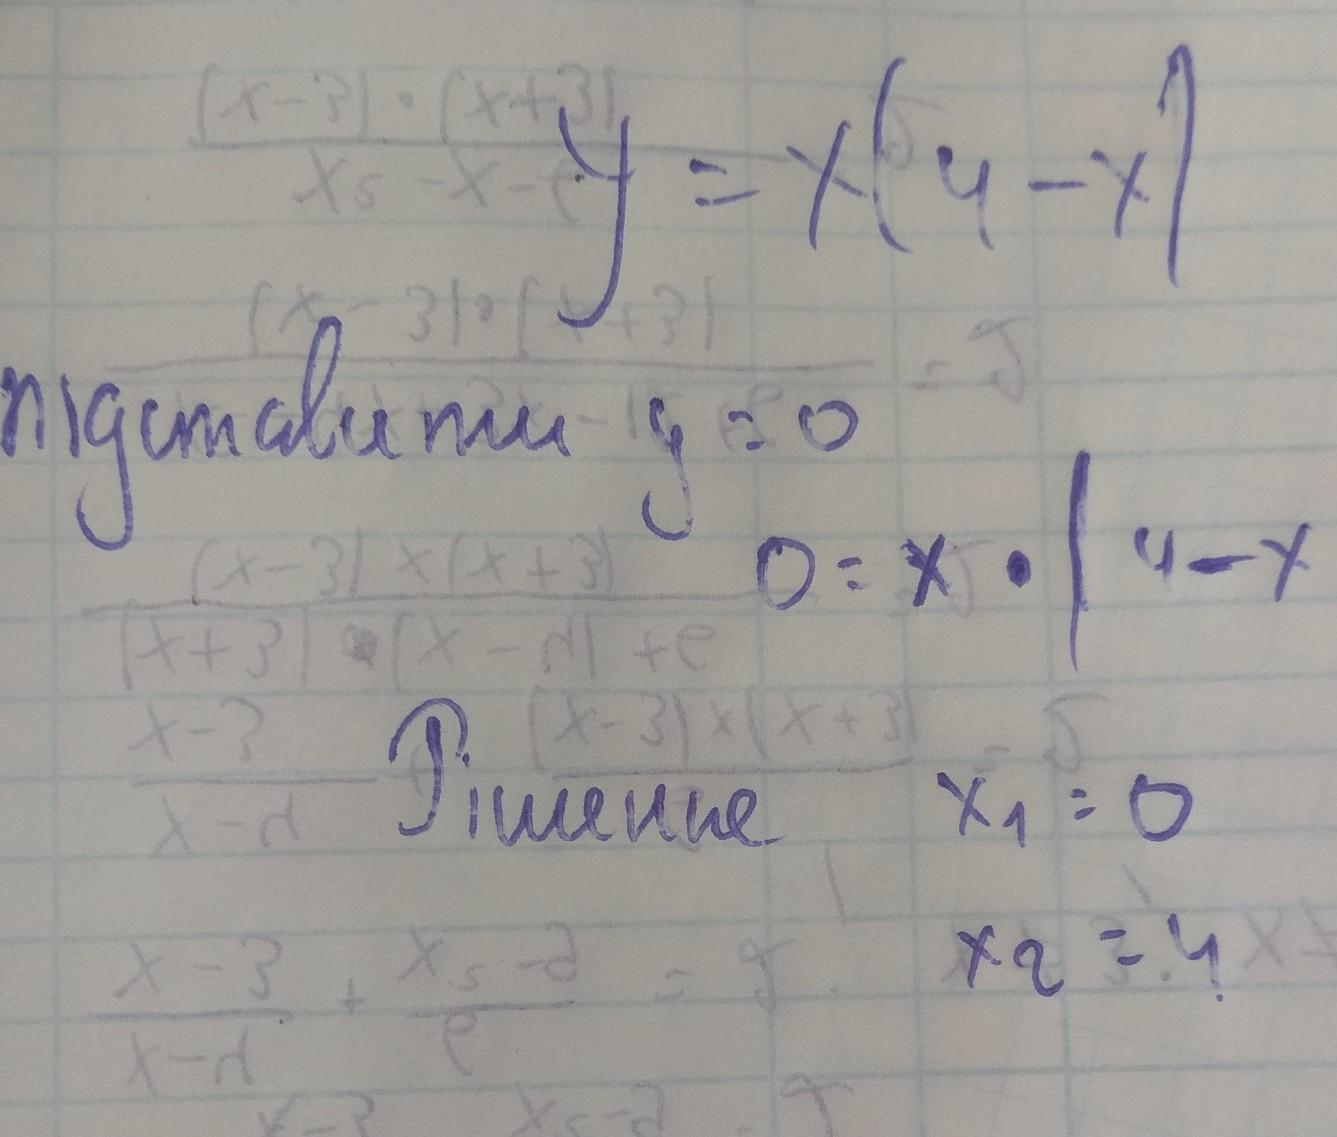 y = x(4-x)
підставити y = 0
0 = x · (4-x
Рішенне x1 = 0
x2 = 4.